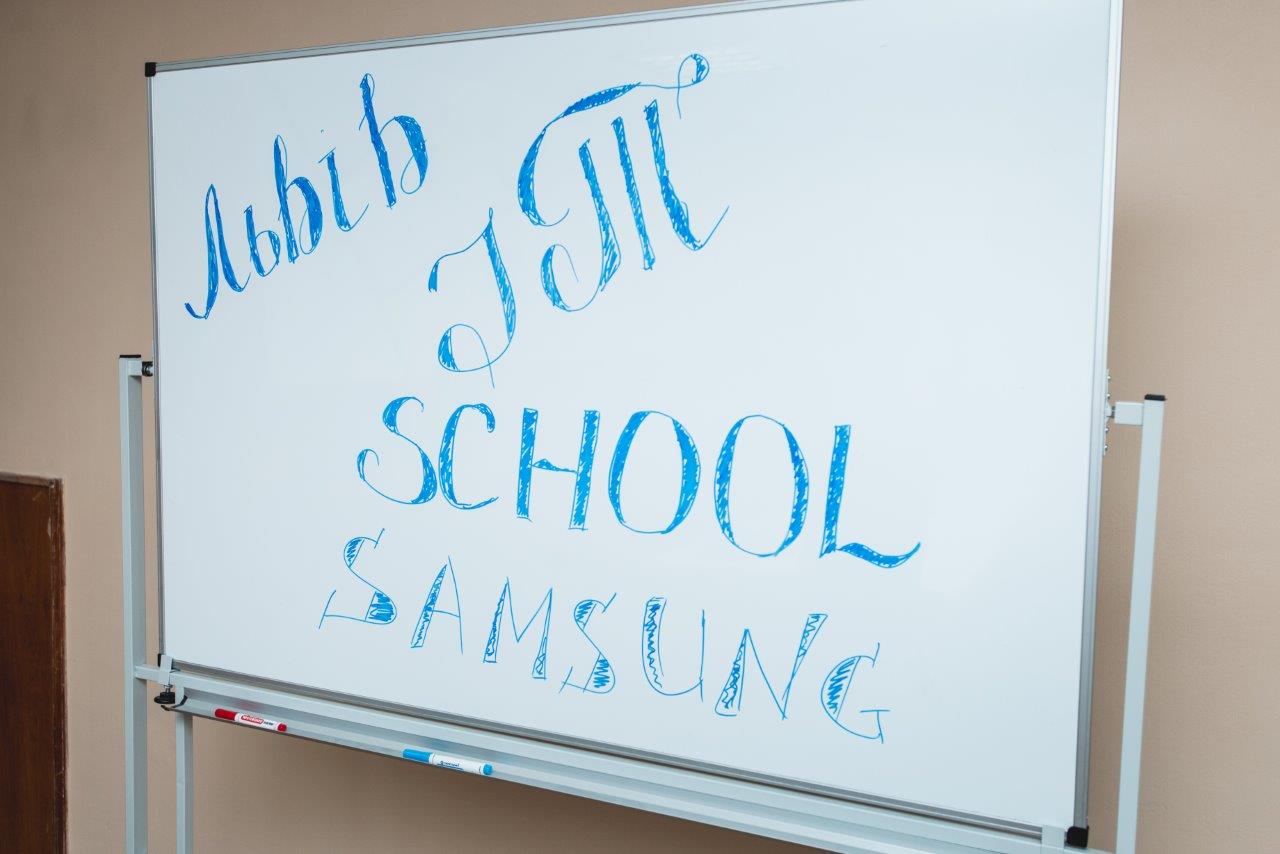 Львів
IT
SCHOOL
SAMSUNG